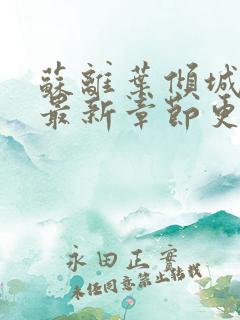 蘇離葉傾城
最新章節更
永田正实
未经同意禁止转载